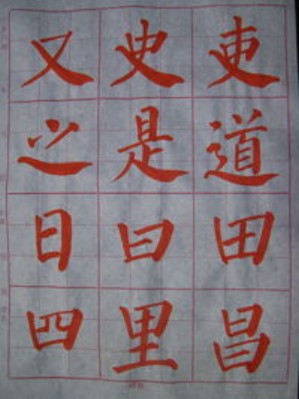 又史吏
之是道
日曰田
四里昌